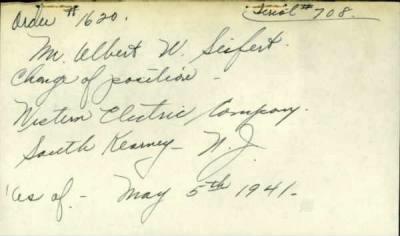 Order # 1620.
Serial # 708.
Mr. Albert W. Seifert.
Change of position -
Western Electric Company.
South Kearney - N.J.
as of. - May 5th 1941.